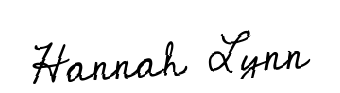 Hannah Lynn